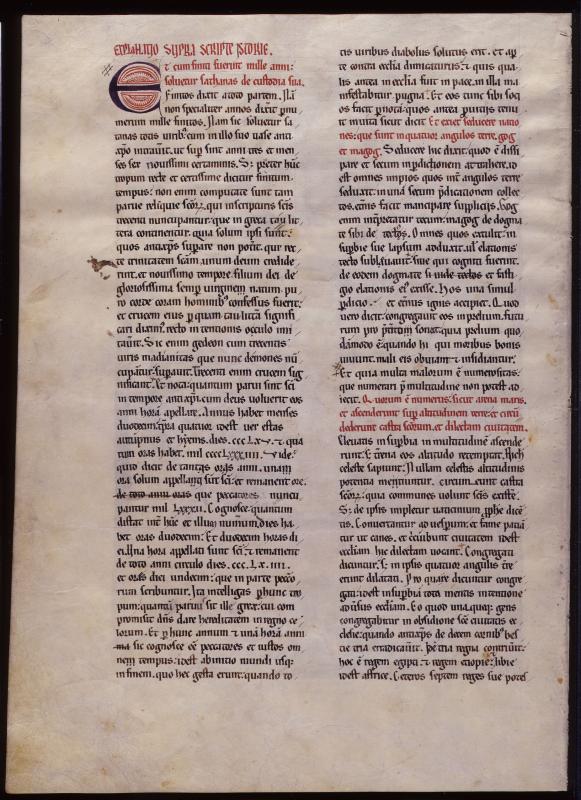 EXPLANATIO SUPRA SCRIPTE ISTORIE.
Et cum finiti fuerint mille anni:
soluetur sathanas de custodia sua.
Finitos dixit a toto partem. Nam
non specialiter annos dixit
merum mille finitos. Nam sic soluetur sa
tanas totis uiribus cum in illo suo uase anti
christo inuaserit. ut sup sint anni tres et men
ses sex nouissimi certaminis. S; preter hunc
tropum recte et certissime dicitur finitum
tempus: non enim computate sunt tam
parue reliquie
trecenti nuncupantur. que in greca tau lit
tera continentur. quia solum ipsi sunt:
quos antixps supare non potit. qui rec
te trinitatem scam unum deum credide
runt. et nouissimo tempore filium dei de
gloriosissima semp uirgine natum. pu
ro corde coram hominib confessus fuerit:
et crucem eius p quam tau littera signifi
cari diximus. recto intentionis occulo imi
tauit. Sic enim gedeon cum trecentis
uiris madianitas que nunc demones nun
cupantur. supauit. Trecenti enim crucem sig
nificant. Et nota: quantum parui sint sci
in tempore antixpi. cum deus uoluerit eos
anni hora apellare. Annus habet menses
duodecim. qra quatuor idest uer estas
autumnus et hyems. dies. ccc LXV. et qua
tuor oras habet. mil cccLXXX.iiii. Vide
quid dicit de tantas oras anni. unam
ora solum appellam sunt sci. et remanent ore.
de toto anni oras que peccatores nuncu
pantur mil LXXXII. Cognosce quantum
distat int hunc et illum numerum. dies ha
bet oras duodecim. Et duodecim horas di
ei. una hora apellati sunt sci. et remanent
de toto anni circulo dies. ccc. L.X.iiii.
et oras diei undecim: que in parte pecco
rum scribuntur. Ita intelligas p hunc tro
pum: quantum paruus sit ille grex: cui com
promisit dns dare hereditatem in regno ce
lorum. Et p hunc annum et una hora anni
ma sic cognosce ee peccatores et iustos om
nem tempus: idest ab initio mundi usq
in finem. quo hec gesta erunt: quando to
tis uiribus diabolus solutus erit. et ap
te contra ecclia dimicaturus. et quis qua
lis antea in ecclia fuit in pace. in illa ma
nifestabitur pugna. Et eos tunc sibi soci
os facit pnota: quos antea puntus tenu
it inuita sicut dicit Et exiet seducere natio
nes: que sunt in quatuor angulos terre. gog
et magog. Seducere hic dixit. quod est dissi
pare et secum in pdictionem attrahere. id
est omnes impios quos int angulos terre
seduxit: in una secum pdicationem collec
tos. ecms facit mancipare suppliciis. Gog
enim interpretatur tectum: magog de dogma
te sibi de tectos. Omnes quos extulit. in
supbie sue lapsum adduxit. ul elationis
tecto subleuauit: siue qui cogniti fuerint.
de eodem dogmate si uide tectos et fasti
gio elationis exisse. hos una simul
pdicio et ems ignis accipiet. Quod
uero dicit: congregauit eos in prelium. futu
rum pro sonat. quia prelium quo
dammodo est: quando hi qui moribus bonis
uiuunt. mali eis obuiant et insidiantur.
Et quia multa malorum est numerositas:
que numerari p multitudine non potest ad
iecit. Quorum e numerus: sicut arena maris.
et ascenderunt sup altitudinem terre: et circum
dederunt castra scorum. et dilectam ciuitatem.
Eleuatis in supbia in multitudine ascende
runt: terrena eos altitudo recempitat. Nichil
celeste sapiunt: Nullam celestis altitudinis
potentia metiuntur. circum eunt castra
scorum: quia communes uolunt scis existere.
S; de ipsis impletur uaticinium pphe dicen
tis. Conuertantur ad uesperum: et famem patian
tur ut canes. et circuibunt ciuitatem idest
eccliam. hic dilectam uocant. Congregati
dicuntur. s; in ipsis quatuor angulis terre
erunt dilatati. Pro quare dicuntur congre
gati: idest in supbia tota mentis intentione
aduersus eccliam. Eo quod unaqueq gens
congregabitur in obsidione sce ciuitatis ec
clesie: quando antixps de decem cornib bes
tie tria eradicauerit. he tria regna
hoc e regem egipti. et regem etiopie: libie
idest affrice. Ceteros septem reges sue potes